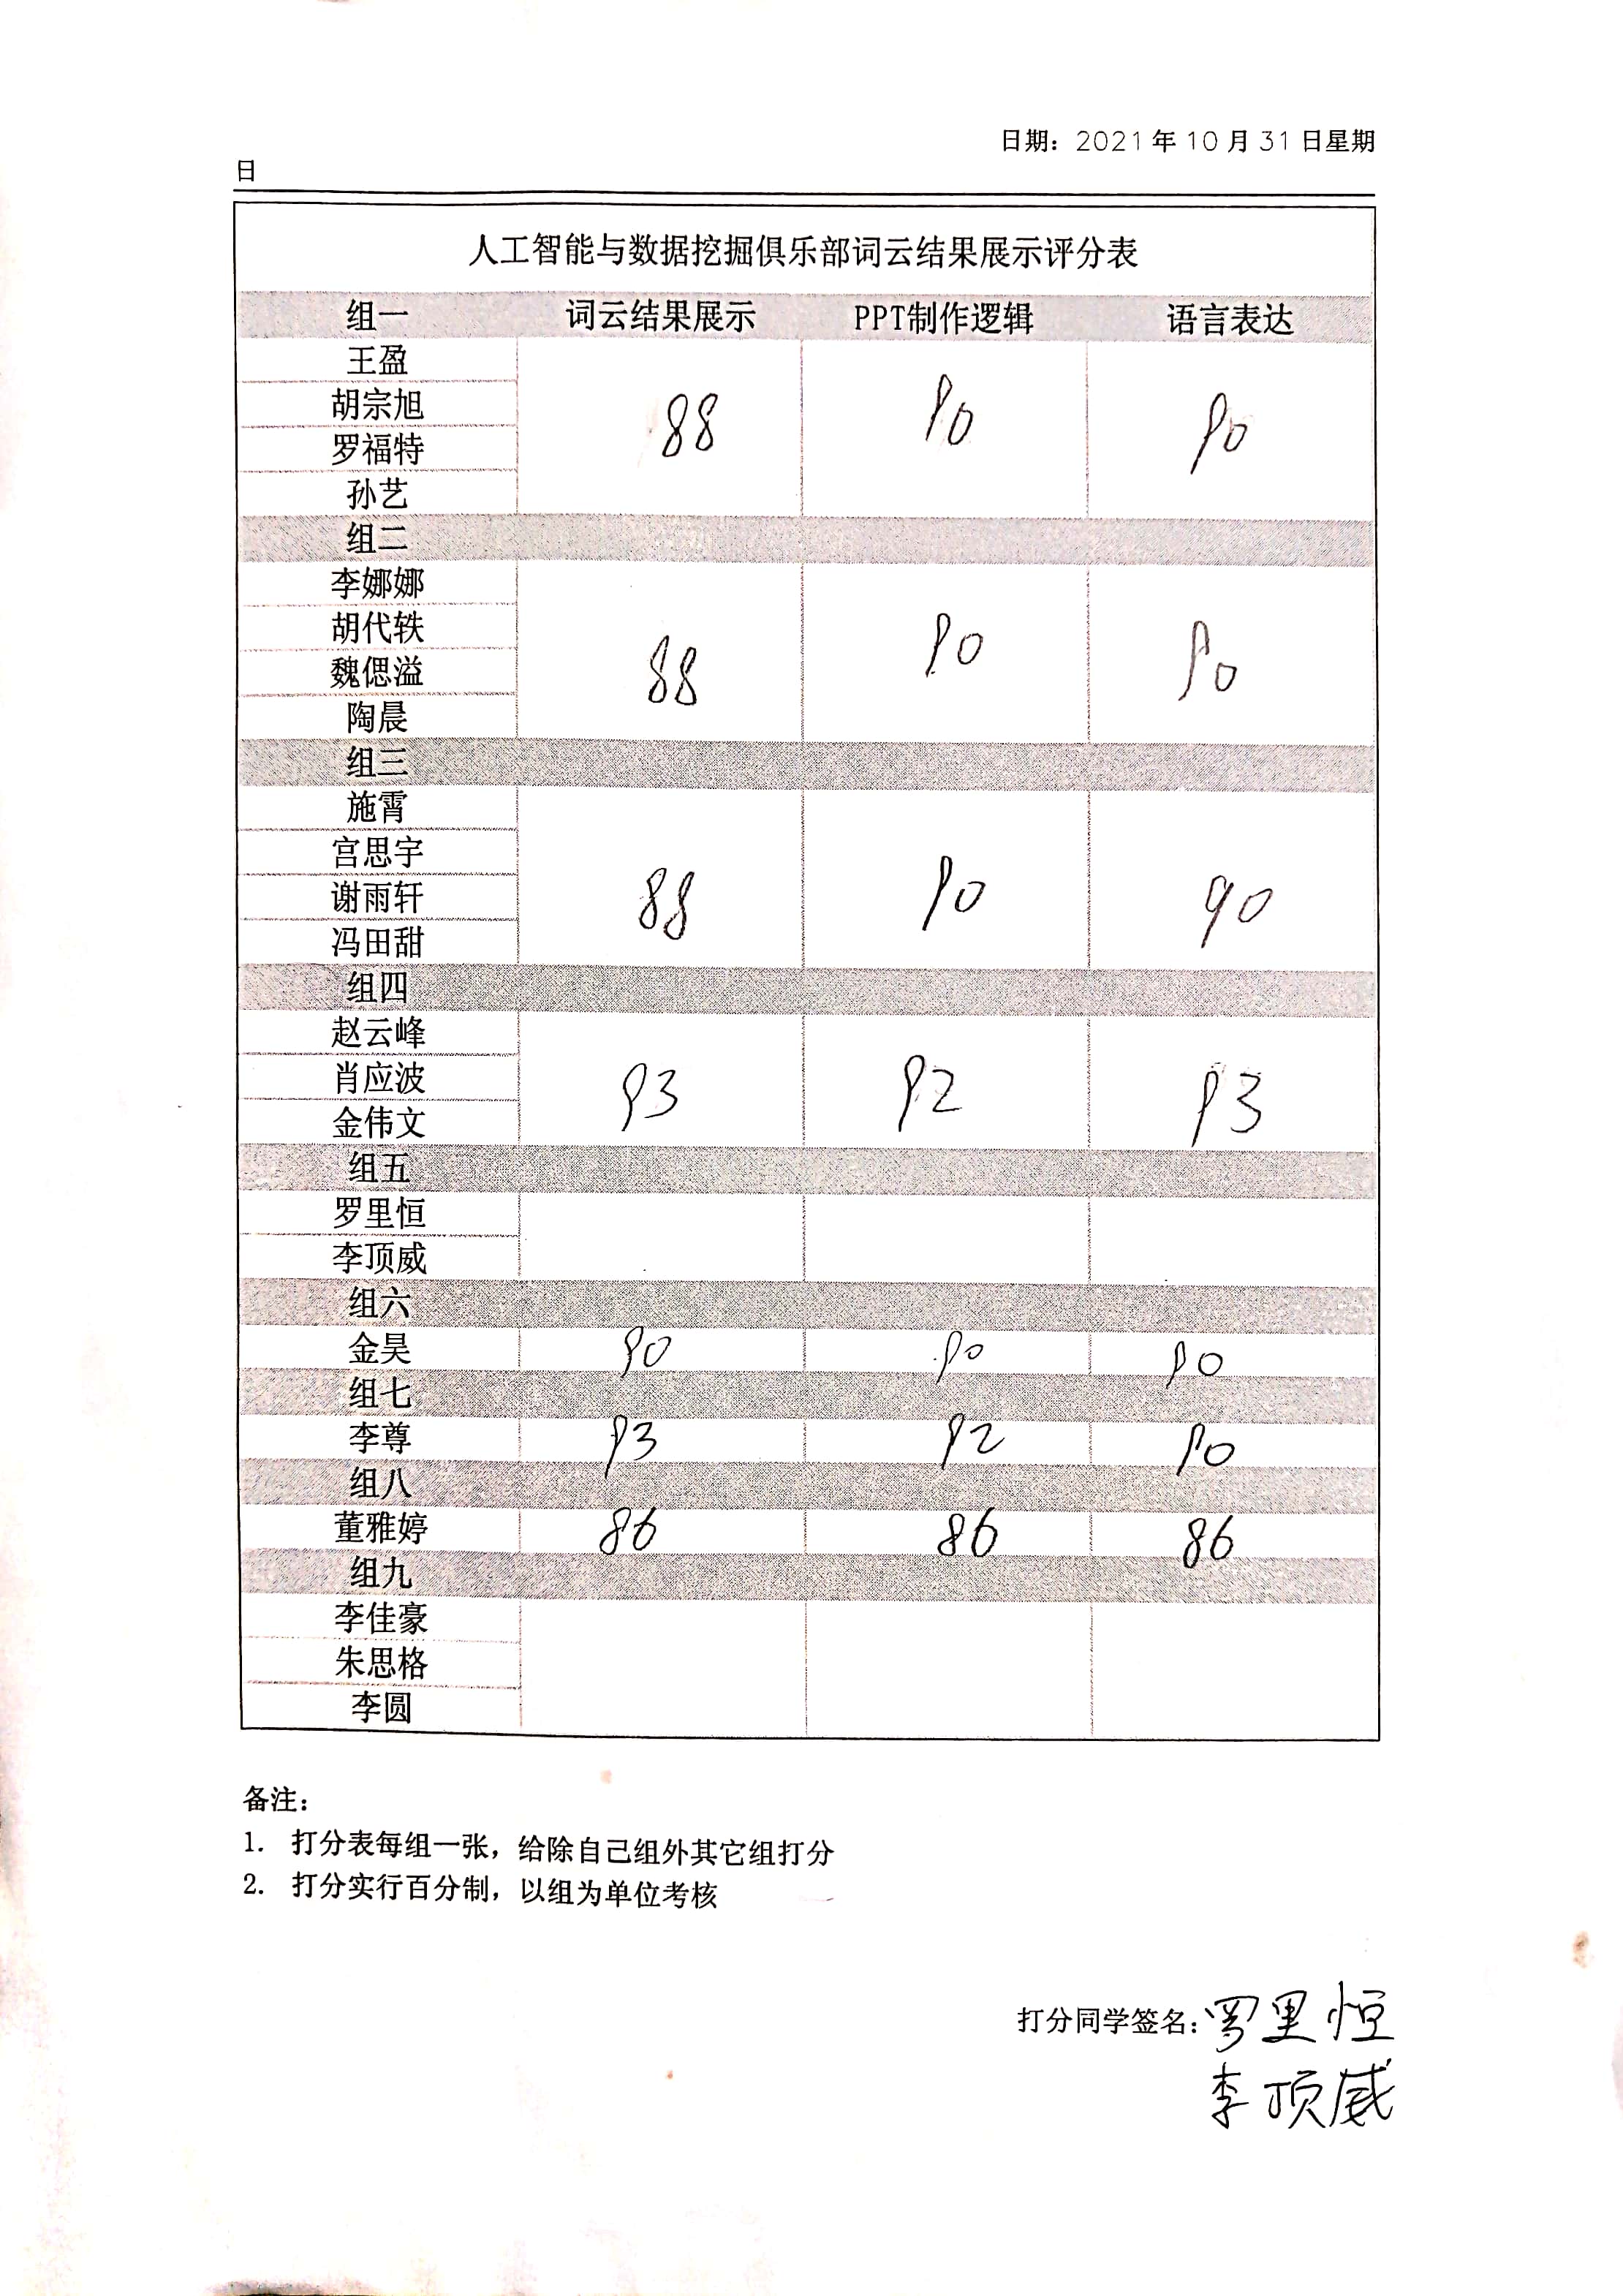 日期：2021年10月31日星期
日
人工智能与数据挖掘俱乐部词云结果展示评分表
组一 词云结果展示 PPT制作逻辑 语言表达
王盈
胡宗旭
88 90 90
罗福特
孙艺
组二
李娜娜
胡代轶
88 90 90
魏偲溢
陶晨
组三
施霄
宫思宇
88 90 90
谢雨轩
冯田甜
组四
赵云峰
肖应波 93 92 93
金伟文
组五
罗里恒
李顶威
组六
金昊 90 90 90
组七
李尊 93 92 90
组八
董雅婷 86 86 86
组九
李佳豪
朱思格
李圆
备注：
1. 打分表每组一张，给除自己组外其它组打分
2. 打分实行百分制，以组为单位考核
打分同学签名：罗里恒
李顶威